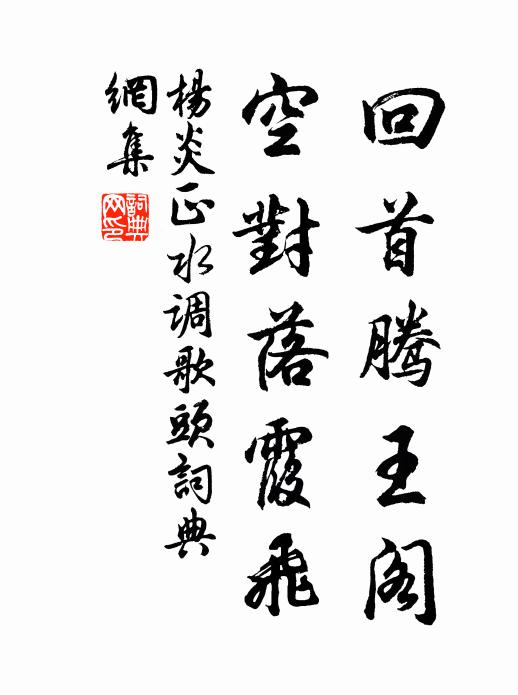 回首騰王阁
空對落霞飛
楊炎正水调歌頭詞典
網集
詞典
网印